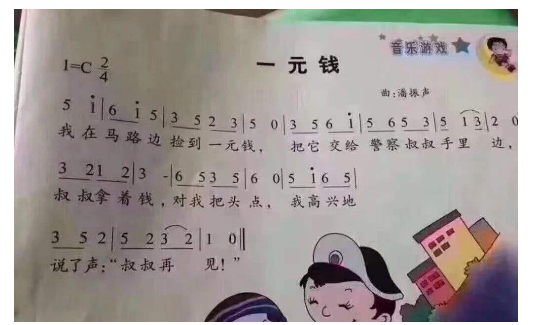 音乐游戏
一元钱
1=C 2/4
曲:潘振声
5 i̇|6 i̇ 5|3 5 2 3|5 0|3 5 6 i̇|5 6 5 3|5 1 3|2 0
我在马路边捡到一元钱，把它交给警察叔叔手里边，
3 2 1 2|3 -|6 5 3 5|6 0|5 i̇ 6 5|
叔叔拿着钱，对我把头点，我高兴地
3 5 2|5 2 3 2|1 0‖
说了声：“叔叔再见！”